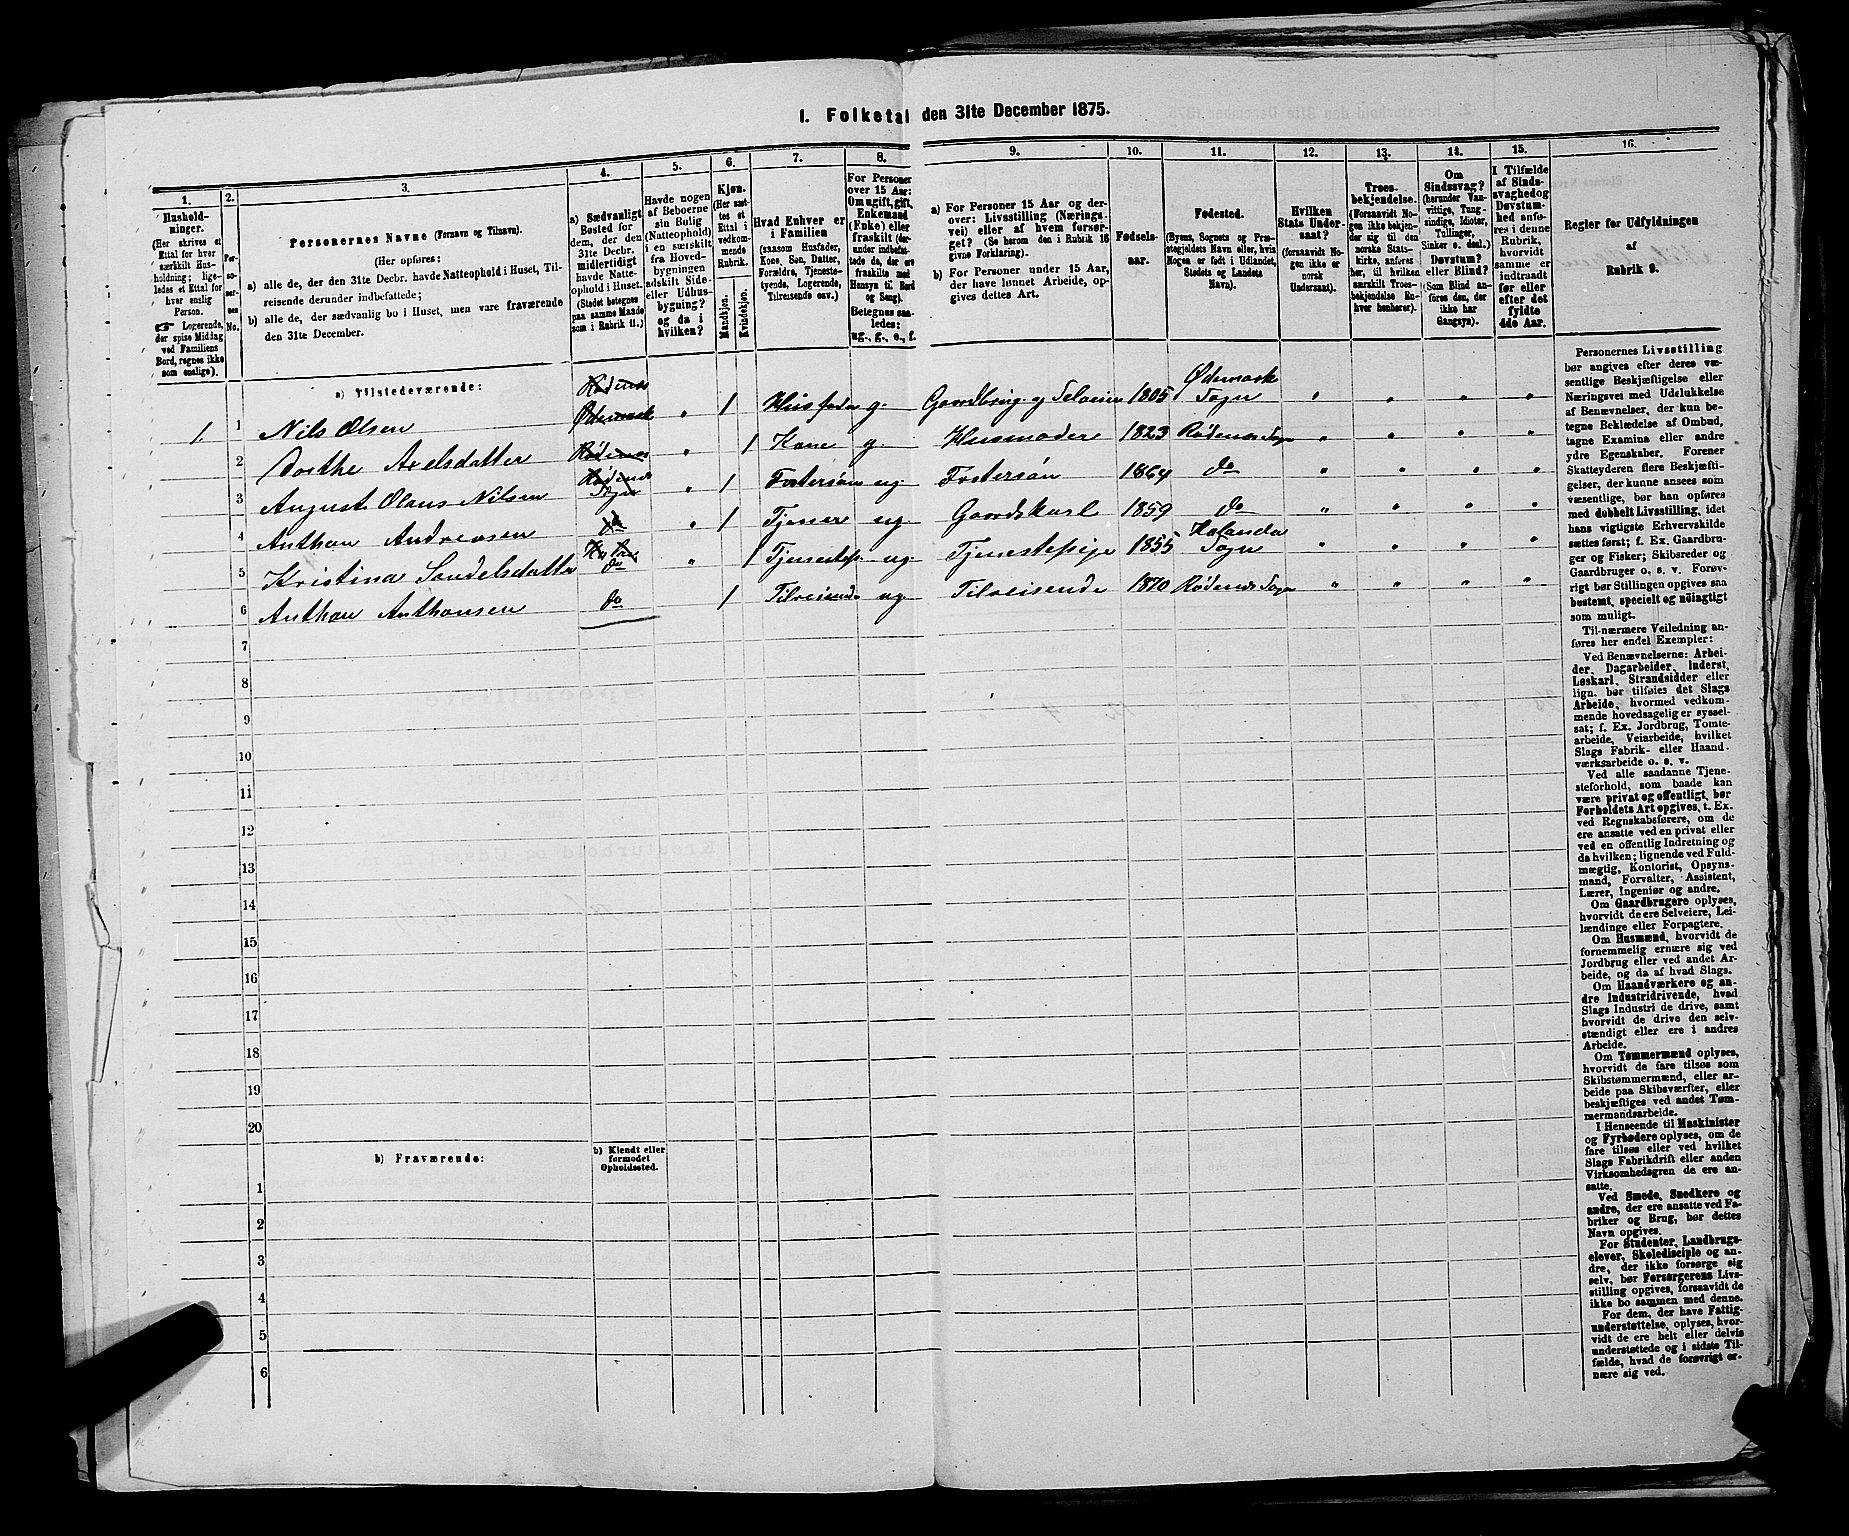 1. Folketal den 31te December 1875.
1. 2. 3. 4. 5. 6. 7. 8. 9. 10. 11. 12. 13. 14. 15. 16.
Hushold-
ninger.
(Her skrives et
Ettal for hver
særskilt Hus-
holdning; lige-
ledes et Ettal for
hver enslig
Person.
☞ Logerende,
der spise Middag
ved Familiens
Bord, regnes ikke
som enslige).
Per-
so-
ner-
nes
No.
Personernes Navne (Fornavn og Tilnavn).
(Her opføres:
a) alle de, der den 31te Decbr. havde Natteophold i Huset, Til-
reisende derunder indbefattede;
b) alle de, der sædvanlig bo i Huset, men vare fraværende
den 31te December.
a) Sædvanligt
Bosted for
dem, der den
31te Decbr.
midlertidigt
havde Natte-
ophold i Huset.
(Stedet betegnes
paa samme Maade
som i Rubrik 11.)
Havde nogen
af Beboerne
sin Bolig
(Natteophold)
i en særskilt
fra Hoved-
bygningen
adskilt Side-
eller Udhus-
bygning?
og da i
hvilken?
Kjøn.
(Her sæt-
tes et
Ettal i
vedkom-
mende
Rubrik.
Mandkjøn.
Kvindekjøn.
Hvad Enhver er
i Familien
(saasom Husfader,
Kone, Søn, Datter,
Forældre, Tjeneste-
tyende, Logerende,
Tilreisende osv.)
For Personer
over 15 Aar:
Om ugift, gift,
Enkemand
(Enke) eller
fraskilt (der-
under indbefat-
tede de, der ere
fraskilte med
Hensyn til Bord
og Seng).
Betegnes saa-
ledes:
ug., g., e., f.
a) For Personer 15 Aar og der-
over: Livsstilling (Nærings-
vei) eller af hvem forsør-
get? (Se herom den i Rubrik 16
givne Forklaring).
b) For Personer under 15 Aar,
der have lønnet Arbeide, op-
gives dettes Art.
Fødsels-
aar.
Fødested.
(Byens, Sognets og Præ-
stegjeldets Navn eller, hvis
Nogen er født i Udlandet,
Stedets og Landets
Navn).
Hvilken
Stats Under-
saat?
(forsaavidt No-
gen ikke er
norsk
Undersaat).
Troes-
bekjendelse.
(Forsaavidt No-
gen ikke bekjen-
der sig til den
norske Stats-
kirke, anføres
her, til hvilken
særskilt Troes-
bekjendelse En-
hver henhører).
Om
Sindssvag?
(herunder Van-
vittige, Tung-
sindige, Idioter,
Tullinger,
Sinker o. desl.)
Døvstum?
eller Blind?
(Som Blind an-
føres den, der
ikke har
Gangsyn).
I Tilfælde
af Sinds-
svaghed og
Døvstum-
hed anfø-
res i denne
Rubrik,
hvorvidt
samme er
indtraadt
før eller
efter det
fyldte
4de Aar.
Regler for Udfyldningen
af
Rubrik 9.
a) Tilstedeværende:
1. 1 Nils Olsen Rødenes Ødemark " 1 Husfader g. Gaardbrug og Selveier 1805 Ødemark Sogn " " " "
2 Dorthe Axelsdatter Rødenes " 1 Kone g. Husmoder 1823 Rødenes Sogn " " " "
3 August Olaus Nilsen Rødenes Sogn " 1 Fostersøn ug. Fostersøn 1864 do " " " "
4 Anthon Andreasen do " 1 Tjener ug Gaardskarl 1859 do " " " "
5 Kristina Sandelsdatter do " 1 Tjenestep. ug Tjenestepige 1855 Sogn " " " "
6 Anthon Anthonsen do 1 Tilreisende ug Tilreisende 1870 Rødenes Sogn " " " "
7
8
9
10
11
12
13
14
15
16
17
18
19
20
b) Fraværende:
b) Kjendt eller
formodet
Opholdssted.
1
2
3
4
5
6
Personernes Livsstilling
bør angives efter deres væ-
sentlige Beskjæftigelse eller
Næringsvei med Udelukkelse
af Benævnelser, der kun be-
tegne Beklædelse af Ombud,
tagne Examina eller andre
ydre Egenskaber. Forener
Skatteyderen flere Beskjæfti-
gelser, der kunne ansees som
væsentlige, bør han opføres
med dobbelt Livsstilling, idet
hans vigtigste Erhvervskilde
sættes først; f. Ex. Gaardbru-
ger og Fisker; Skibsreder og
Gaardbruger o. s. v. Forøv-
rigt bør Stillingen opgives saa
bestemt, specielt og nøiagtigt
som muligt.
Til nærmere Veiledning an-
føres her endel Exempler:
Ved Benævnelserne: Arbei-
der, Dagarbeider, Inderst,
Løskarl, Strandsidder eller
lign. bør tilføies det Slags
Arbeide, hvormed vedkom-
mende hovedsagelig er syssel-
sat; f. Ex. Jordbrug, Tomte-
arbeide, Veiarbeide, hvilket
Slags Fabrik- eller Haand-
værksarbeide o. s. v.
Ved alle saadanne Tjene-
steforhold, som baade kan
være privat og offentligt, bør
Forholdets Art opgives, t. Ex.
ved Regnskabsførere, om de
ere ansatte ved en privat eller
ved en offentlig Indretning og
da hvilken; lignende ved Fuld-
mægtig, Kontorist, Opsyns-
mand, Forvalter, Assistent,
Lærer, Ingeniør og andre.
Om Gaardbrugere oplyses,
hvorvidt de ere Selveiere, Lei-
lændinge eller Forpagtere.
Om Husmænd, hvorvidt de
fornemmelig ernære sig ved
Jordbrug eller ved andet Ar-
beide, og da af hvad Slags.
Om Haandværkere og an-
dre Industridrivende, hvad
Slags Industri de drive, samt
hvorvidt de drive den selv-
stændigt eller ere i andres
Arbeide.
Om Tømmermænd oplyses,
hvorvidt de fare tilsøs som
Skibstømmermænd, eller ar-
beide paa Skibsværfter, eller
beskjæftiges ved andet Tøm-
mermandsarbeide.
I Henseende til Maskinister
og Fyrbødere oplyses, om de
fare tilsøs eller ved hvilket
Slags Fabrikdrift eller anden
Virksomhedsgren de ere an-
satte.
Ved Smede, Snedkere og
andre, der ere ansatte ved Fa-
briker og Brug, bør dettes
Navn opgives.
For Studenter, Landbrugs-
elever, Skoledisciple og an-
dre, der ikke forsørge sig
selv, bør Forsørgerens Livs-
stilling opgives, forsaavidt de
ikke bo sammen med denne.
For dem, der have Fattig-
understøttelse, oplyses, hvor-
vidt de ere helt eller delvis
understøttede og i sidste Til-
fælde, hvad de forøvrigt er-
nære sig ved.